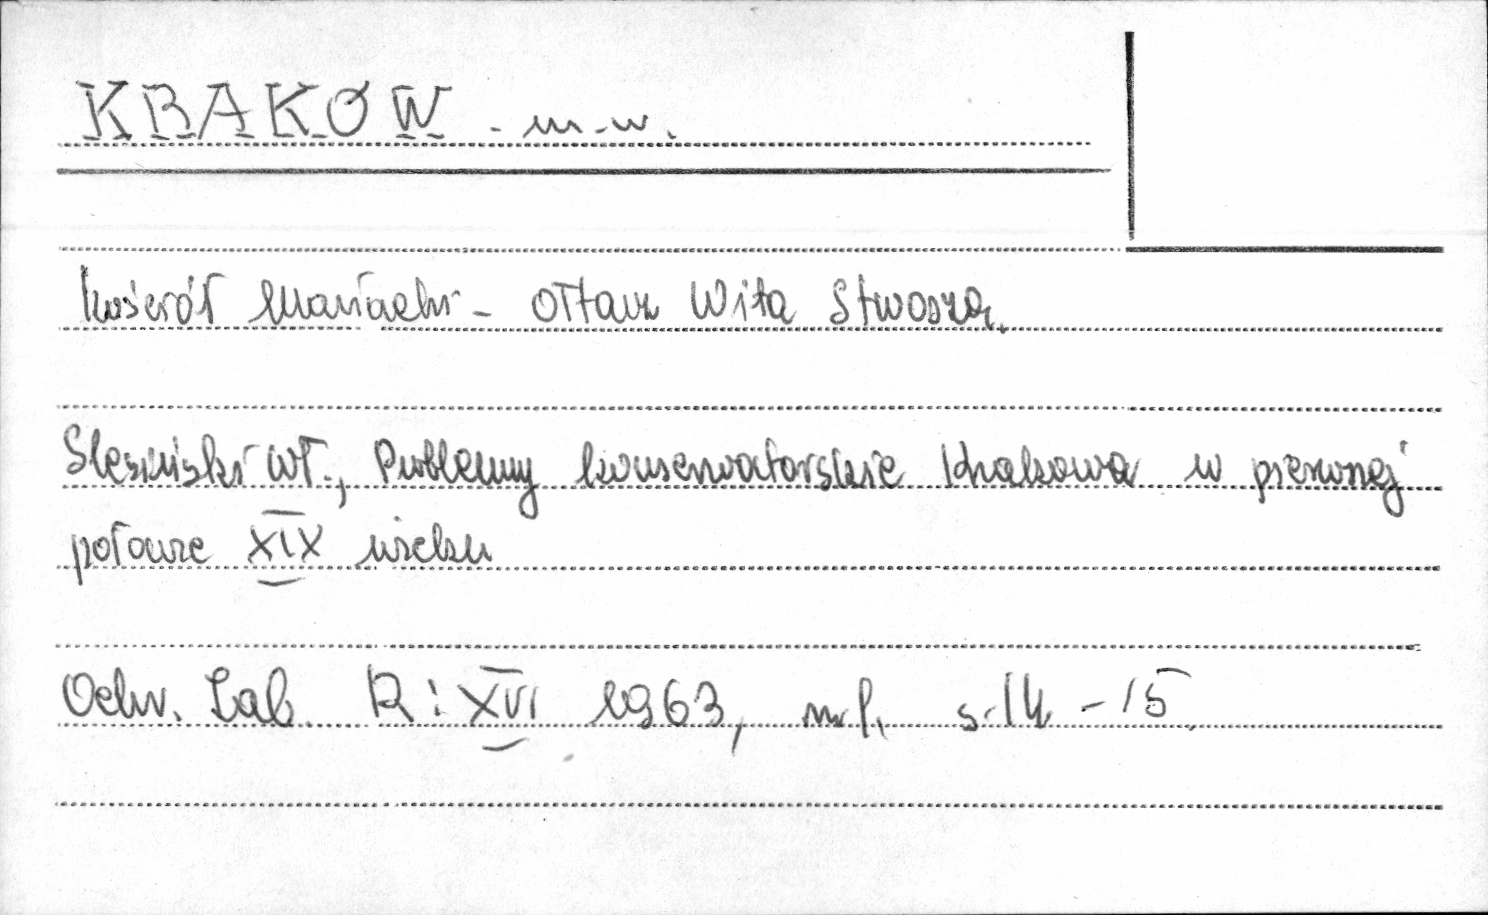 KRAKÓW - m.w.
Kościół Mariacki - ołtarz Wita Stwosza.
Ślesiński Wł., Problemy konserwatorskie Krakowa w pierwszej
połowie XIX wieku
Ochr. Zab. R: XVI 1963, nr 1, s. 14 - 15